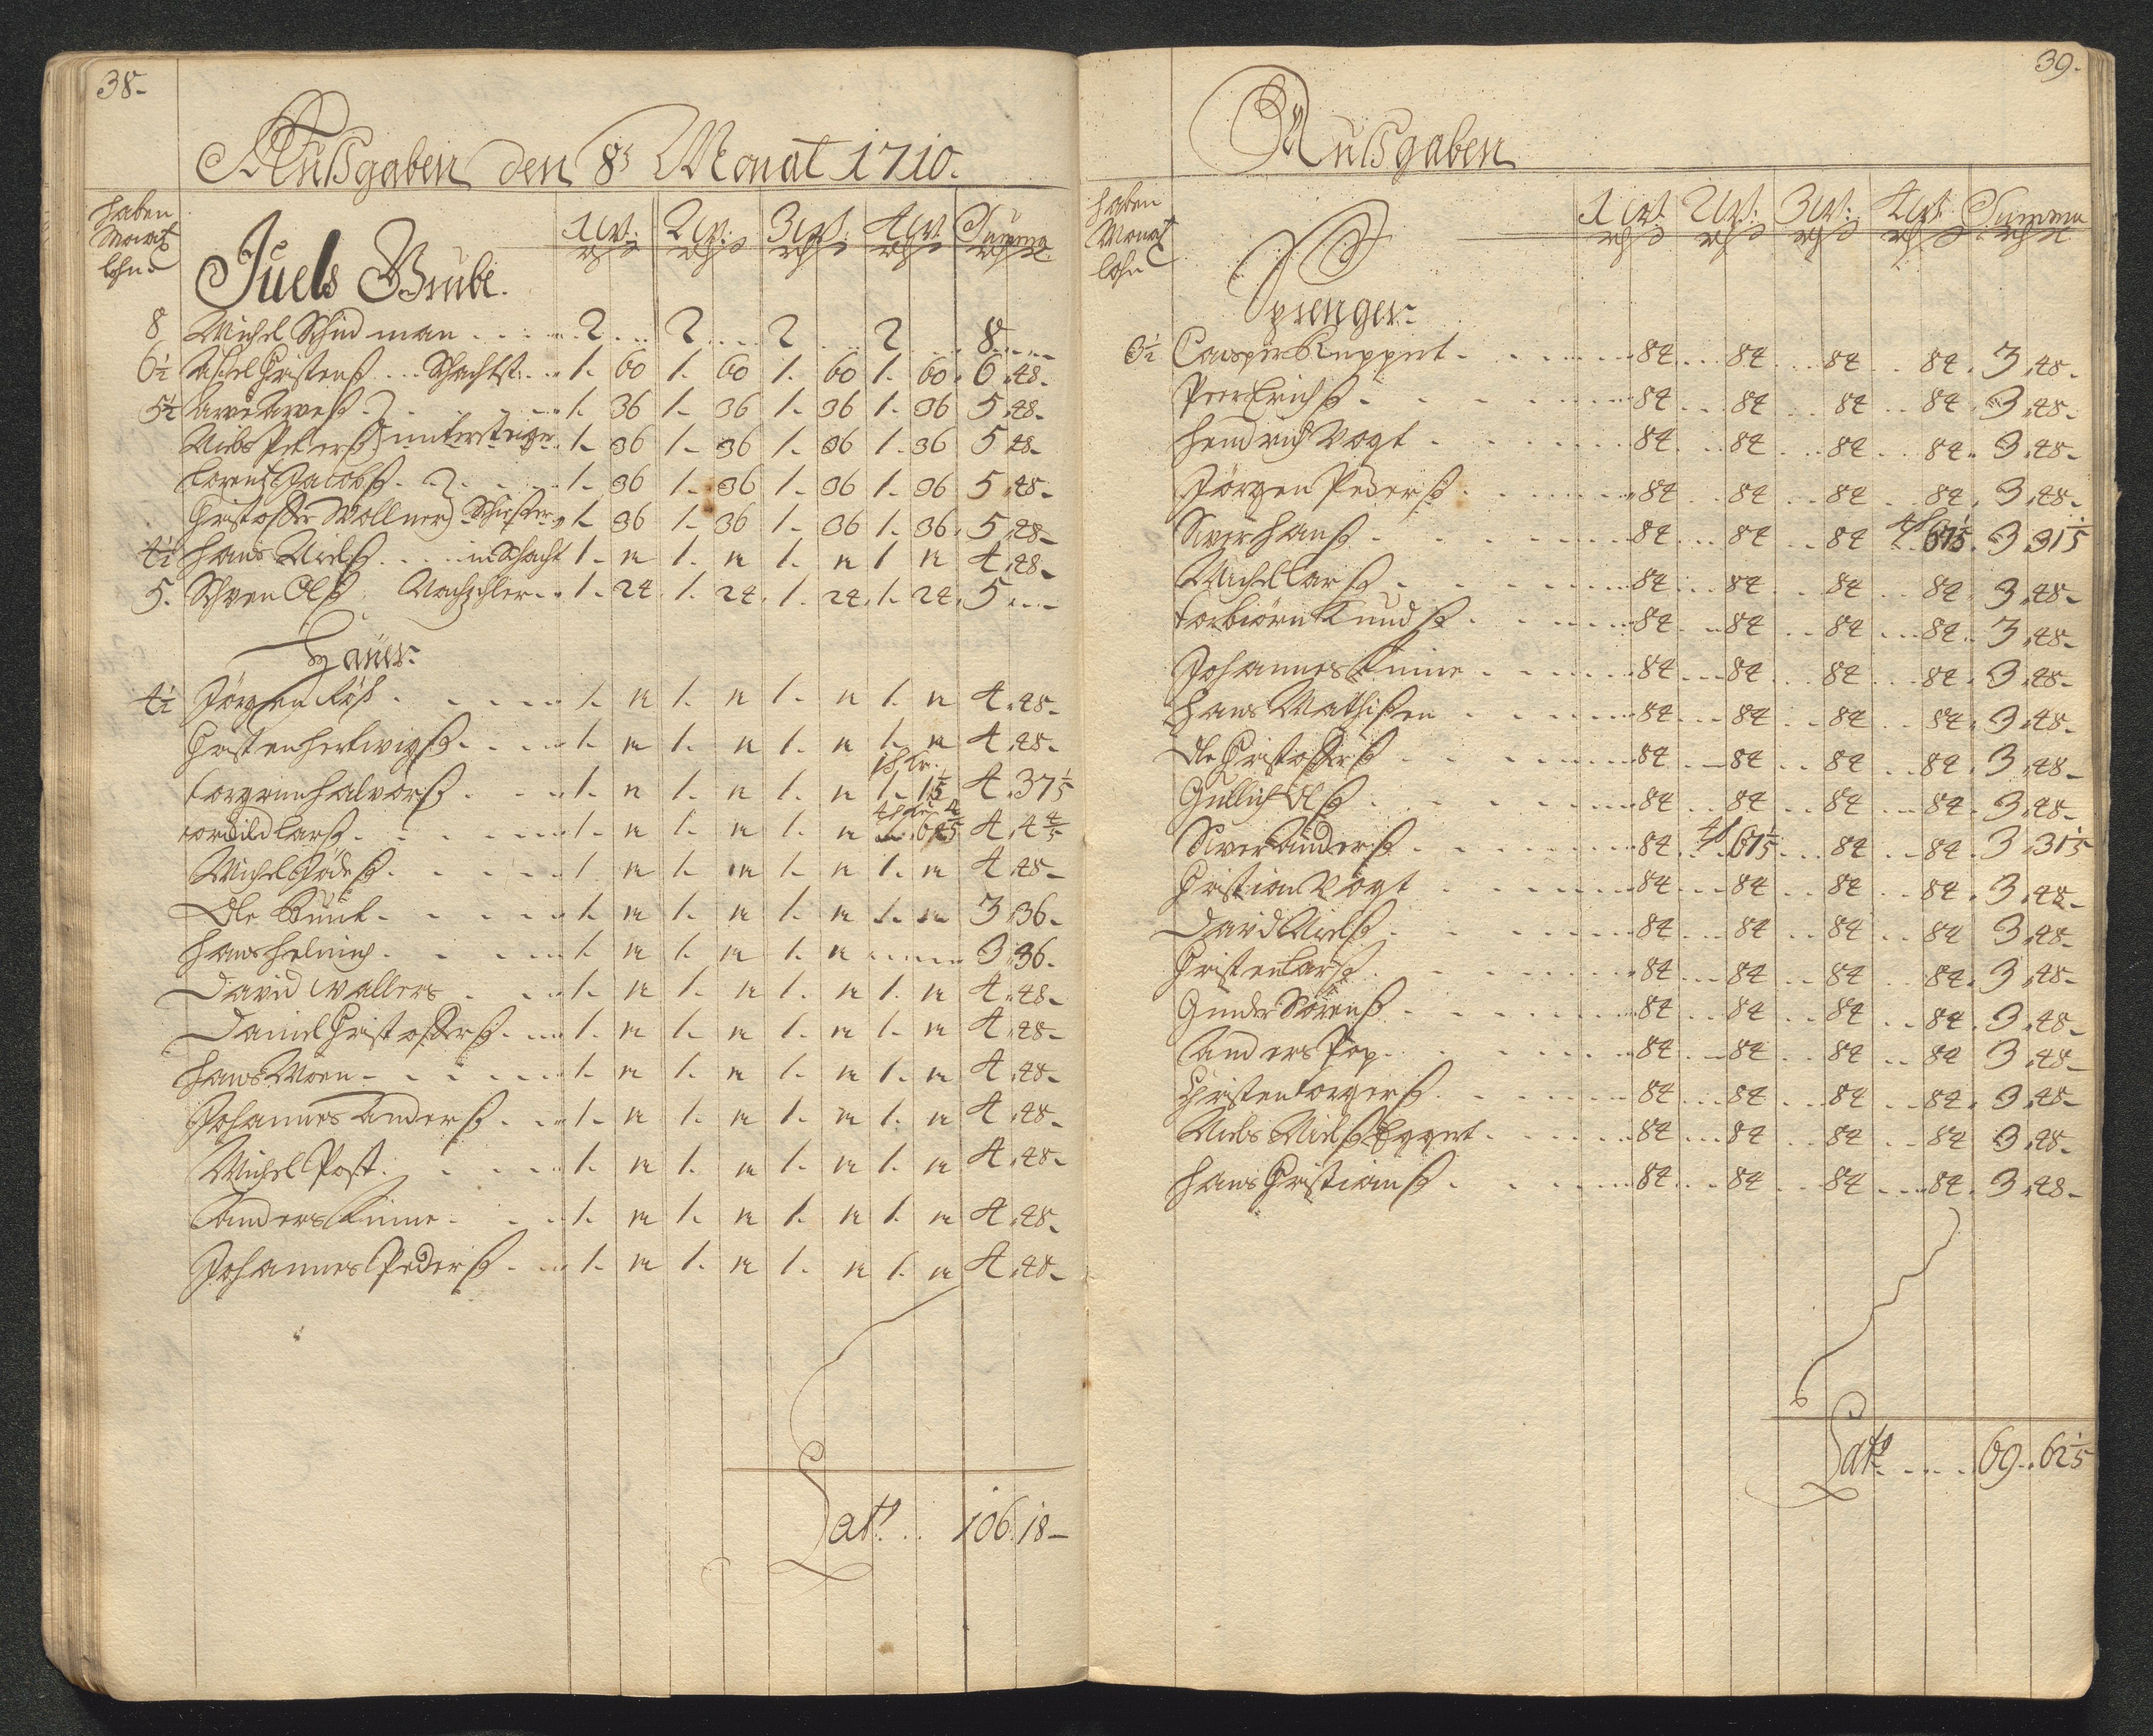 38.
Außgaben den 8t Monat 1710.
haben
Monat
lohn
1 W: 2 W: 3 W: 4 W: Summa
Juels Grube.
8 Michel Schindman . . . 2 . . 2 . . 2 . . 2 . . 8 . .
6½ Michel Christenß . . Schachtst: . . 1. 60 1. 60 1. 60 1. 60. 6. 48.
5½ Arve Arveß. . . . 1. 36 1. 36 1. 36 1. 36 5. 48.
Niels Peterß untersteiger 1. 36 1. 36 1. 36 1. 36 5. 48.
Lorentz Jacobß. . . . 1. 36 1. 36 1. 36 1. 36 5. 48.
Christoffer Wollner Schießer. 1. 36 1. 36 1. 36 1. 36. 5. 48.
4½ Hans Nielß . . . in Schacht 1. 12 1. 12 1. 12 1. 12 4. 48.
5. Schven Olß Nachzehler . . 1. 24. 1. 24. 1. 24. 1. 24. 5 . . .
Häuer.
4½ Jörgen Röß . . . . 1. 12 1. 12 1. 12 1. 12 4. 48.
Christen Hertwigß . . . 1. 12 1. 12 1. 12 1. 12 4. 48.
Torgrim Halvorß . . . 1. 12 1. 12 1. 12 1. 1⅕ 4. 37⅕
Larß. . . . 1. 12 1. 12 1. 12 4. 4⅘
Michel Jödeß . . . . 1. 12 1. 12 1. 12 1. 12 4. 48.
Ole Bunt. . . . 1. 12 1. 12 1. 12 3. 36.
Hans Helmich . . . 1. 12 1. 12 1. 12 . . . 3. 36.
David Wallers . . . 1. 12 1. 12 1. 12 1. 12 4. 48.
Daniel Christofferß . . . 1. 12 1. 12 1. 12 1. 12 4. 48.
Hans Moen . . . . 1. 12 1. 12 1. 12 1. 12 4. 48.
Johannes Anderß . . . 1. 12 1. 12 1. 12 1. 12 4. 48.
Michel Post . . . . 1. 12 1. 12 1. 12 1. 12 4. 48.
Anders Kinne . . . 1. 12 1. 12 1. 12 1. 12 4. 48.
Johannes Pederß . . . 1. 12 1. 12 1. 12 1. 12 4. 48.
Lat: . . 106. 18.
39.
Außgaben
haben
Monat
lohn
1 W: 2 W: 3 W: 4 W: Summa
Sprenger.
3½ Casper Ruppert . . . . 84 . . 84 . . 84 . . 84. 3. 48.
Peer Erichß . . . . 84 . . 84 . . 84 . . 84. 3. 48.
Hendrich Vogt . . . . 84 . . 84 . . 84 . . 84. 3. 48.
Jörgen Pederß . . . . 84 . . 84 . . 84 . . 84. 3. 48.
Siver Hanß . . . . 84 . . 84 . . 84 67⅕. 3. 31⅕
Michel Larß . . . . 84 . . 84 . . 84 . . 84. 3. 48.
Torbiörn Knudß . . . . 84 . . 84 . . 84 . . 84. 3. 48.
Johannes Kinne . . . . 84 . . 84 . . 84 . . 84. 3. 48.
Hans Mathißen . . . . 84 . . 84 . . 84 . . 84. 3. 48.
Ole Christofferß . . . . 84 . . 84 . . 84 . . 84. 3. 48.
Gullich Olß . . . . 84 . . 84 . . 84 . . 84. 3. 48.
Siver Anderß . . . . 84 67⅕ . . 84 . . 84. 3. 31⅕
Christian Vogt . . . . 84 . . 84 . . 84 . . 84. 3. 48.
David Nielß . . . . 84 . . 84 . . 84 . . 84 3. 48.
Christen Larß . . . . 84 . . 84 . . 84 . . 84. 3. 48.
Gunder Sörenß . . . . 84 . . 84 . . 84 . . 84. 3. 48.
Anders Pop . . . . 84 . . 84 . . 84 . . 84 3. 48.
Christen Torgerß . . . . 84 . . 84 . . 84 . . 84. 3. 48.
Niels Nielß Eggert . . . . 84 . . 84 . . 84 . . 84 3. 48.
Hans Christianß . . . . 84 . . 84 . . 84 . . 84. 3. 48.
Lat: . . . 69. 62⅖